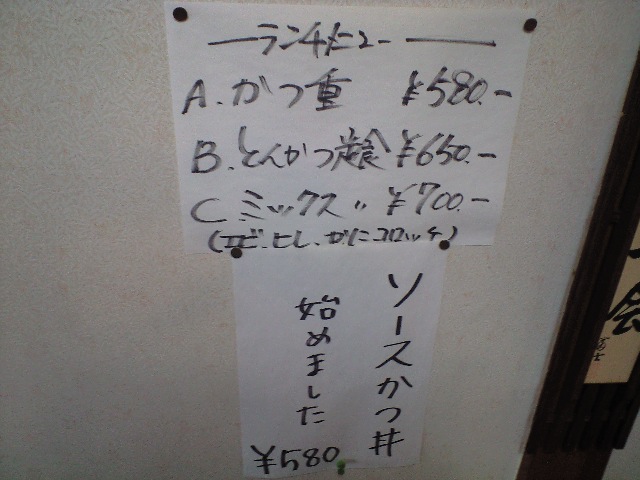 ランチメニュー
A. かつ重 ¥580.-
B. とんかつ定食 ¥650.-
C ミックス 〃 ¥700.-
(エビ.ヒレ.かにコロッケ)
ソースかつ丼
始めました
¥580
会